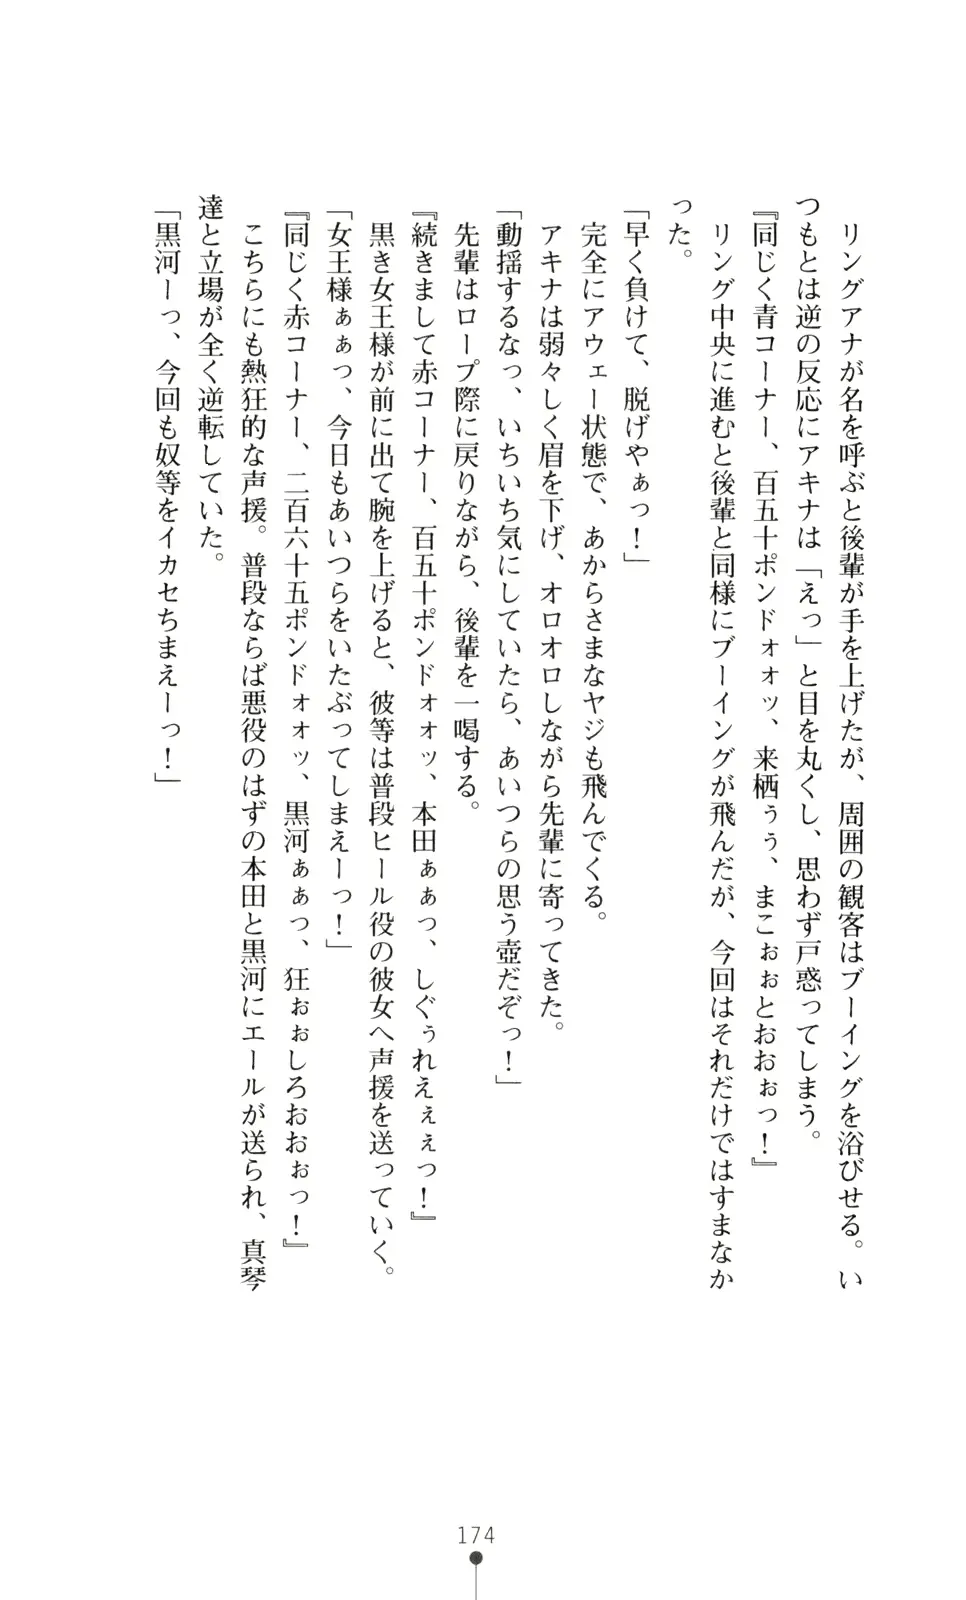 リングアナが名を呼ぶと後輩が手を上げたが、周囲の観客はブーイングを浴びせる。い
つもとは逆の反応にアキナは「えっ」と目を丸くし、思わず戸惑ってしまう。
『同じく青コーナー、百五十ポンドォォッ、来栖ぅぅ、まこぉぉとおおぉっ！』
リング中央に進むと後輩と同様にブーイングが飛んだが、今回はそれだけではすまなか
った。
「早く負けて、脱げやぁっ！」
完全にアウェー状態で、あからさまなヤジも飛んでくる。
アキナは弱々しく眉を下げ、オロオロしながら先輩に寄ってきた。
「動揺するなっ、いちいち気にしていたら、あいつらの思う壺だぞっ！」
先輩はロープ際に戻りながら、後輩を一喝する。
『続きまして赤コーナー、百五十ポンドォォッ、本田ぁぁっ、しぐぅれえぇぇっ！』
黒き女王様が前に出て腕を上げると、彼等は普段ヒール役の彼女へ声援を送っていく。
「女王様ぁぁっ、今日もあいつらをいたぶってしまえーっ！」
『同じく赤コーナー、二百六十五ポンドォォッ、黒河ぁぁっ、狂ぉぉしろおおぉっ！』
こちらにも熱狂的な声援。普段ならば悪役のはずの本田と黒河にエールが送られ、真琴
達と立場が全く逆転していた。
「黒河ーっ、今回も奴等をイカセちまえーっ！」
174